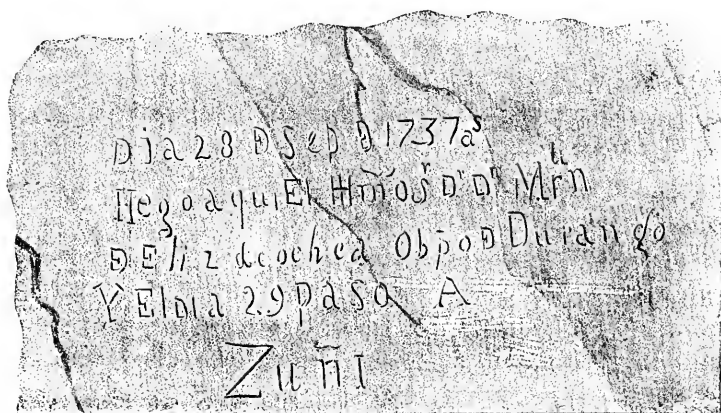 Dia 28 Đ Sep Đ 1737 aˢ
llego aqui El Hm̃o Sʳ Dʳ Dⁿ Mrⁿ
Đ Elizdcochea Obpo Đ Durango
Y El Dia 29 paso A
Zuñi